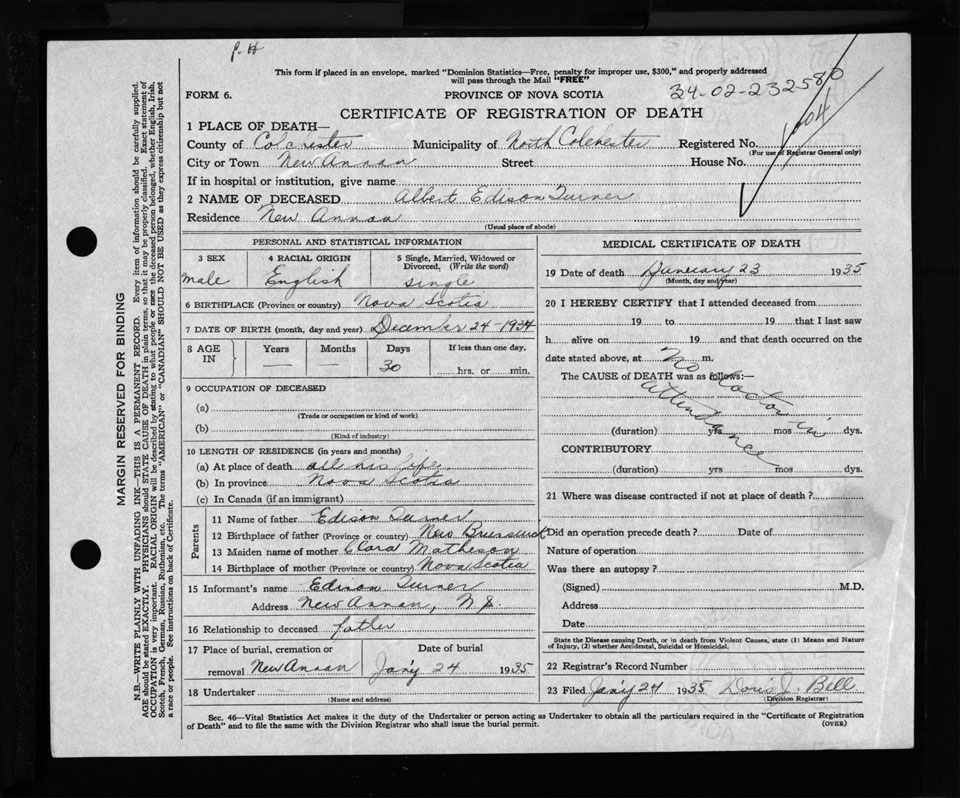 P. H
This form if placed in an envelope, marked "Dominion Statistics—Free, penalty for improper use, $300," and properly addressed
will pass through the Mail "FREE"
FORM 6. PROVINCE OF NOVA SCOTIA 34-02-232580
CERTIFICATE OF REGISTRATION OF DEATH
1 PLACE OF DEATH— 1404
County of Colchester Municipality of North Colchester Registered No.
(For use of Registrar General only)
City or Town New Annan Street House No.
If in hospital or institution, give name
2 NAME OF DECEASED Albert Edison Turner
Residence New Annan
(Usual place of abode)
PERSONAL AND STATISTICAL INFORMATION
3 SEX 4 RACIAL ORIGIN 5 Single, Married, Widowed or
Divorced, (Write the word)
male English single
6 BIRTHPLACE (Province or country) Nova Scotia
7 DATE OF BIRTH (month, day and year) December 24-1934
8 AGE IN Years Months Days If less than one day,
— — 30 hrs. or min.
9 OCCUPATION OF DECEASED
(a)
(Trade or occupation or kind of work)
(b)
(Kind of industry)
10 LENGTH OF RESIDENCE (in years and months)
(a) At place of death all his life
(b) In province Nova Scotia
(c) In Canada (if an immigrant)
Parents
11 Name of father Edison Turner
12 Birthplace of father (Province or country) New Brunswick
13 Maiden name of mother Clara Matheson
14 Birthplace of mother (Province or country) Nova Scotia
15 Informant's name Edison Turner
Address New Annan, N S.
16 Relationship to deceased father
17 Place of burial, cremation or Date of burial
removal New Annan Jan'y 24 1935
18 Undertaker —
(Name and address)
MEDICAL CERTIFICATE OF DEATH
19 Date of death January 23 1935
(Month, day and year)
20 I HEREBY CERTIFY that I attended deceased from
19 to 19 that I last saw
h alive on 19 and that death occurred on the
date stated above, at m.
The CAUSE of DEATH was as follows:—
No doctor in
attendance
(duration) yrs mos dys.
CONTRIBUTORY
(duration) yrs mos dys.
21 Where was disease contracted if not at place of death?
Did an operation precede death? Date of
Nature of operation
Was there an autopsy?
(Signed) M.D.
Address
Date
State the Disease causing Death, or in death from Violent Causes, state (1) Means and Nature
of Injury, (2) whether Accidental, Suicidal or Homicidal.
22 Registrar's Record Number
23 Filed Jan'y 24 1935 Doris J. Bell
(Division Registrar)
Sec. 46—Vital Statistics Act makes it the duty of the Undertaker or person acting as Undertaker to obtain all the particulars required in the "Certificate of Registration
of Death" and to file the same with the Division Registrar who shall issue the burial permit. (OVER)
MARGIN RESERVED FOR BINDING
N.B.—WRITE PLAINLY WITH UNFADING INK—THIS IS A PERMANENT RECORD. Every item of information should be carefully supplied.
AGE should be stated EXACTLY. PHYSICIANS should STATE CAUSE OF DEATH in plain terms, so that it may be properly classified. Exact statement of
OCCUPATION is very important. RACIAL ORIGIN will be described by stating to what people or race the deceased person belonged, whether English, Irish,
Scotch, French, German, Russian, Ruthenian, etc. The terms "AMERICAN" or "CANADIAN" SHOULD NOT BE USED as they express citizenship but not
a race or people. See instructions on back of Certificate.